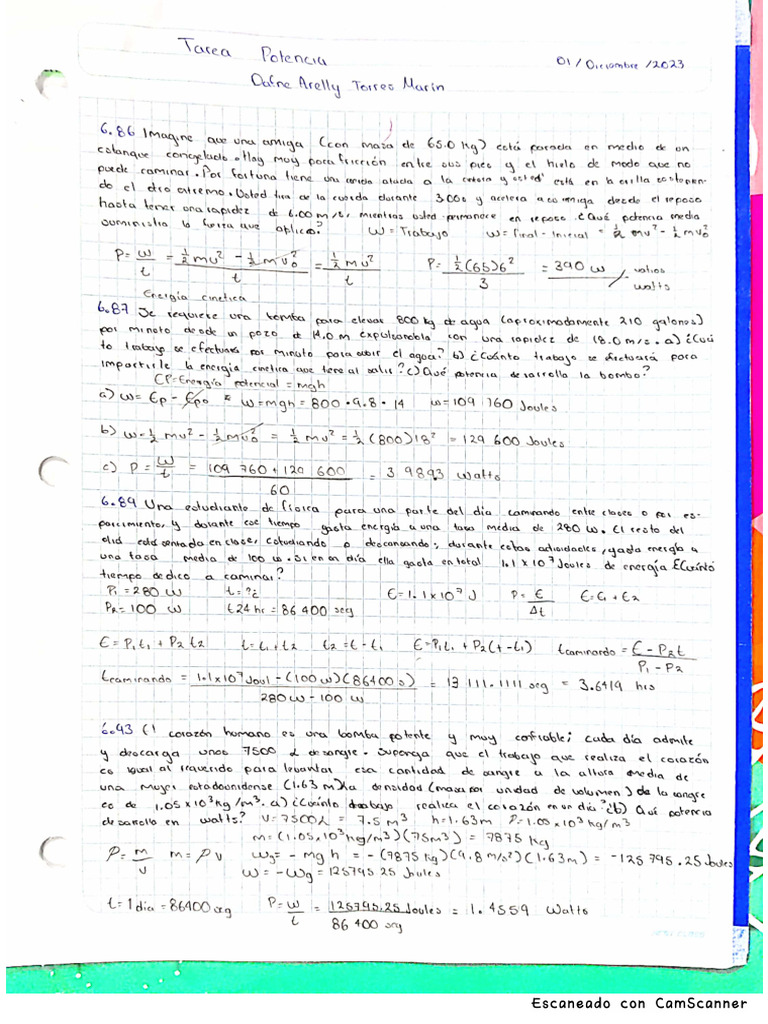 Tarea Potencia
01/Diciembre/2023
Dafne Arelly Torres Marin
6.86 Imagine que una amiga (con masa de 65.0 kg) está parada en medio de un
estanque congelado. Hay muy para fricción entre sus pies y el hielo de modo que no
puede caminar. Por fortuna tiene una atada a la cintura y usted está en la orilla sosteniendo
do el otro extremo. Usted tira de la cuerda durante 3.00s y acelera a su amiga desde el reposo
hasta tener una rapidez de 6.00 m/s, mientras usted permanece en reposo. ¿Qué potencia media
suministra la fuerza que aplico? W=Trabajo w=Final-Inicial = ½ mv² - ½ mv₀²
P= w/t = (½ mv² - ½ mv₀²)/t = ½ mv²/t P= ½(65)6²/3 = 390 w / vatios watts
Energía cinetica
6.87 Se requiere una bomba para elevar 800 kg de agua (aproximadamente 210 galones)
por minuto desde un pozo de 14.0 m expulsandola con una rapidez de 18.0 m/s. a) ¿Cuá
to trabajo se efectuará por minuto para subir el agua? b) ¿Cuánto trabajo se efectuará para
impartirle la energía cinetica que tiene al salir? c) ¿Qué potencia desarrolla la bomba?
EP=Energía potencial = mgh
a) w= Ep - Epo = w=mgh = 800 • 9.8 • 14 w=109 760 Joules
b) w=½ mv² - ½ mv₀² = ½ mv² = ½ (800)18² = 129 600 Joules
c) P = w/t = (109 760 + 129 600)/60 = 3 9893 watts
6.89 Una estudiante de física para una parte del día caminando entre clases o por es-
parcimiento, y durante ese tiempo gasta energía a una tasa media de 280 w. El resto del
día está sentada en clase, estudiando o descansando; durante estas actividades, gasta energía a
una tasa media de 100 w. Si en un día ella gasta en total 1.1 x 10⁷ Joules de energía ¿Cuánto
tiempo dedico a caminar?
P₁=280 w t=?¿ E=1.1x10⁷ J P= E/Δt E=E₁+E₂
P₂=100 w t24 hr = 86 400 seg
E=P₁t₁+P₂t₂ t=t₁+t₂ t₂=t-t₁ E=P₁t₁+P₂(t-t₁) tcaminando = (E-P₂t)/(P₁-P₂)
tcaminando = (1.1x10⁷Joul-(100w)(86400s))/(280w-100w) = 13 111.1111 seg = 3.6419 hrs
6.93 El corazón humano es una bomba potente y muy confiable; cada día admite
y descarga unos 7500 L de sangre. Suponga que el trabajo que realiza el corazón
es igual al requerido para levantar esa cantidad de sangre a la altura media de
una mujer estadounidense (1.63 m) La densidad (masa por unidad de volumen) de la sangre
es de 1.05x10³ kg/m³. a) ¿Cuánto trabajo realiza el corazón en un día? ¿b) Qué potencia
desarrolla en watts? V=7500L = 7.5 m³ h=1.63m P=1.05x10³ kg/m³
m=(1.05x10³kg/m³)(75m³) = 7875 kg
P= m/v m=PV Wg=-mgh = -(7875 kg)(9.8 m/s²)(1.63m) = -125 795.25 Joules
W=-Wg=125795.25 Joules
t=1 dia=86400 seg P=w/t = 125795.25 Joules/86 400 seg = 1.4559 watts
Escaneado con CamScanner